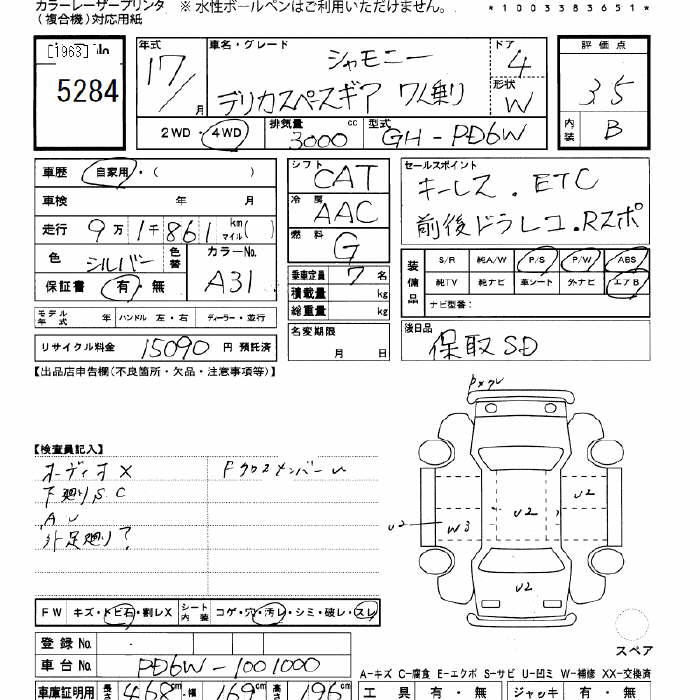 カラーレーザープリンタ ※水性ボールペンはご利用いただけません。
(複合機)対応用紙
*1003383651*
[1963] No
5284
年式 17/ 月
車名・グレード シャモニー
デリカスペースギア 7人乗り
ドア 4
形状 W
評価点 3.5
内装 B
2WD・4WD 排気量 3000 cc 型式 GH-PD6W
車歴 自家用・( )
車検 年 月
走行 9万1千861 km マイル( )
色 シルバー 色替 カラーNo. A31
保証書 有・無
モデル年式 年 ハンドル 左・右 ディーラー・並行
リサイクル料金 15090 円 預託済
シフト CAT
冷房 AAC
燃料 G
乗車定員 7 名
積載量 kg
総重量 kg
名変期限
月 日
セールスポイント
キーレス.ETC
前後ドラレコ.Rスポ
装備品 S/R 純A/W P/S P/W ABS
純TV 純ナビ 革シート 外ナビ エアB
ナビ型番:
後日品
保取SD
【出品店申告欄(不良箇所・欠品・注意事項等)】
【検査員記入】
オーディオX Fクロスメンバーu
下廻りS.C
AU
外足廻り?
U2 W3 U2 U2
U2
FW キズ・トビ石・割レX シート内装 コゲ・穴・汚レ・シミ・破レ・スレ
登録No.
車台No. PD6W-1001000
車庫証明用 長さ 468cm・幅 169cm 高さ 196cm
スペア
A-キズ C-腐食 E-エクボ S-サビ U-凹ミ W-補修 XX-交換済
工具 有・無 ジャッキ 有・無